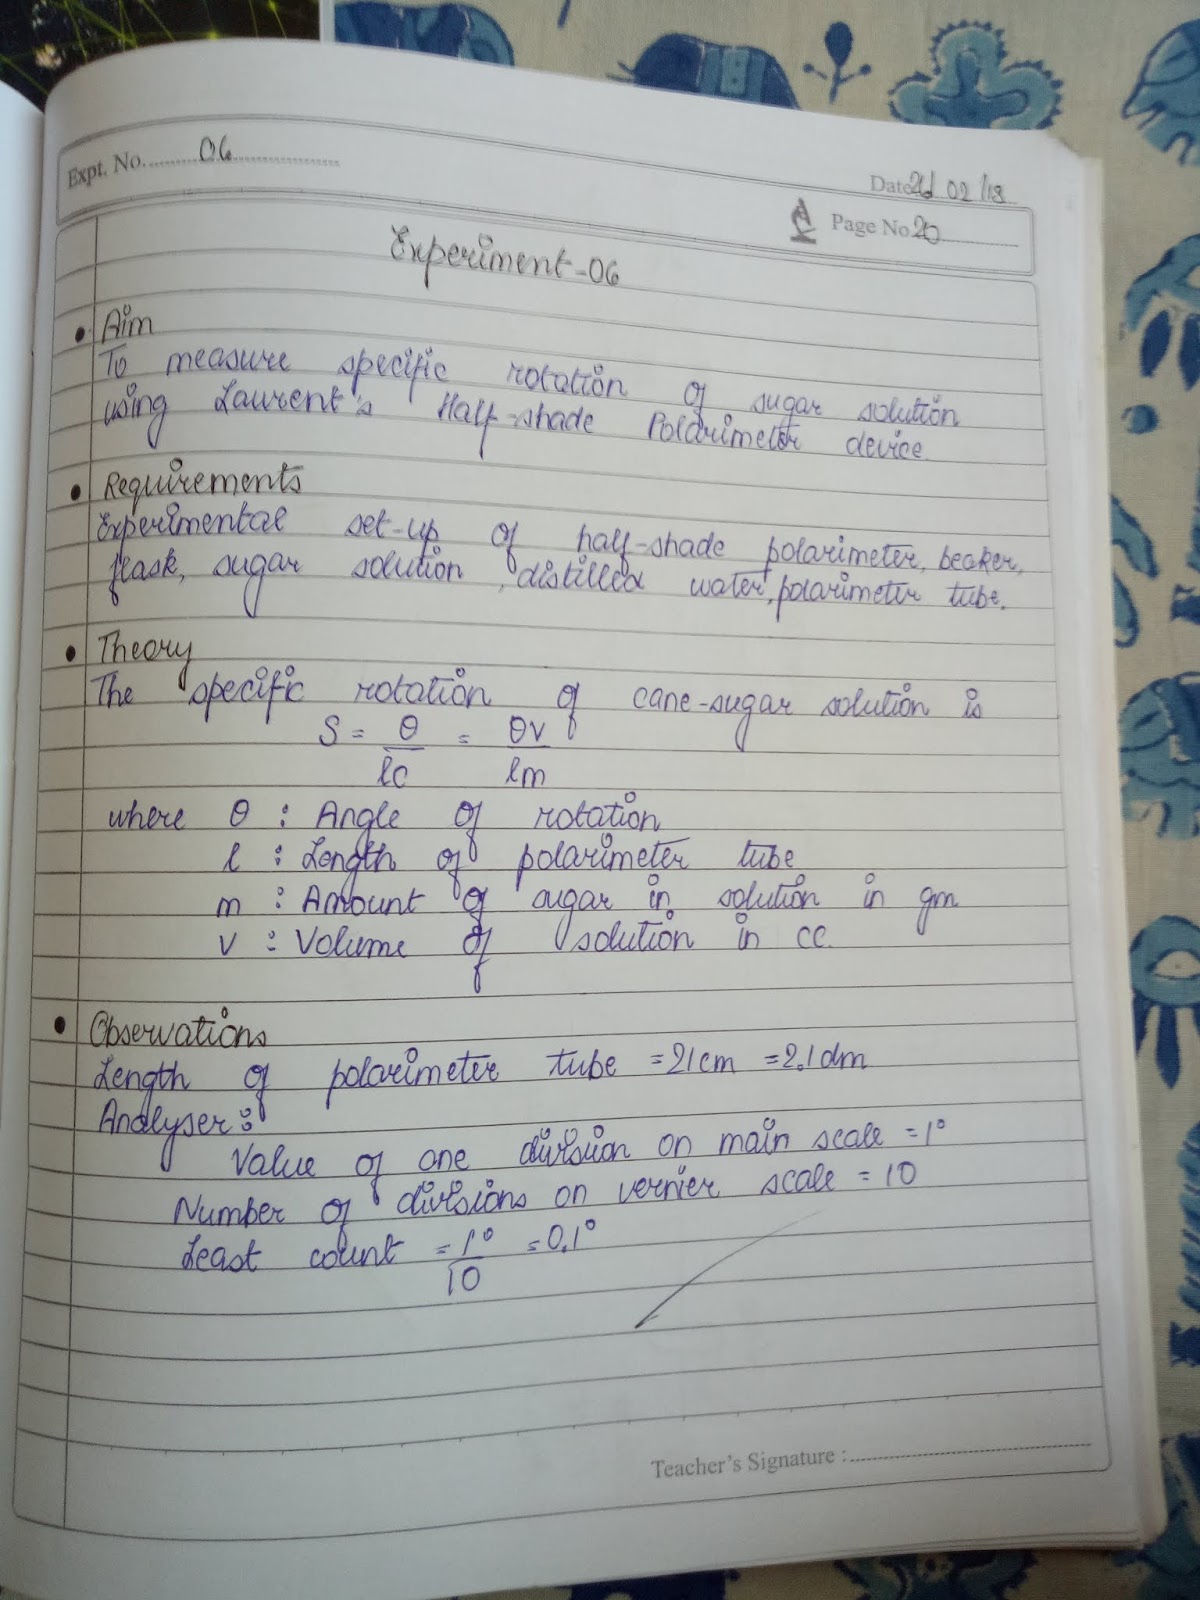 Expt. No. 06
Date 02/18
Page No. 20
Experiment-06
• Aim
To measure specific rotation of sugar solution
using Laurent's Half-shade Polarimeter device.
• Requirements
Experimental set-up of half-shade polarimeter, beaker,
flask, sugar solution, distilled water, polarimeter tube.
• Theory
The specific rotation of cane-sugar solution is
S = θ/lc = θv/lm
where θ : Angle of rotation
l : Length of polarimeter tube
m : Amount of sugar in solution in gm
v : Volume of solution in cc.
• Observations
Length of polarimeter tube = 21cm = 2.1dm
Analyser :
Value of one division on main scale = 1°
Number of divisions on vernier scale = 10
Least count = 1°/10 = 0.1°
Teacher's Signature :